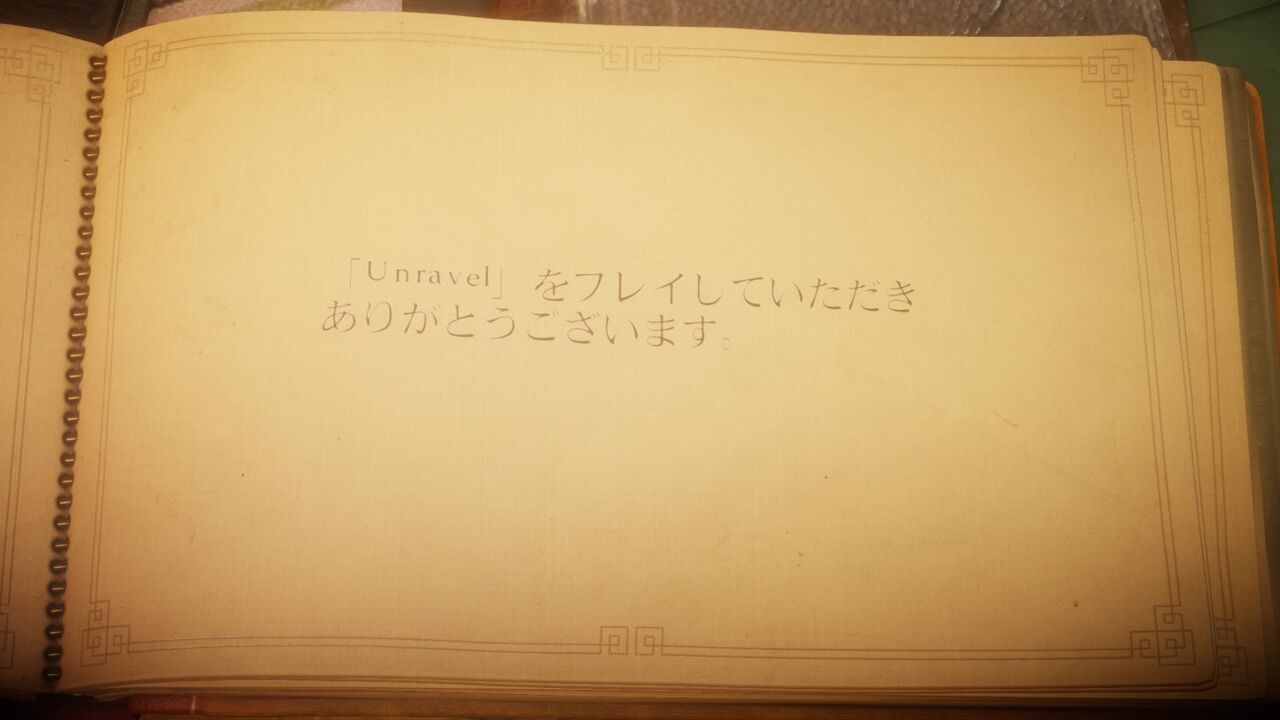 「Unravel」をプレイしていただき
ありがとうございます。